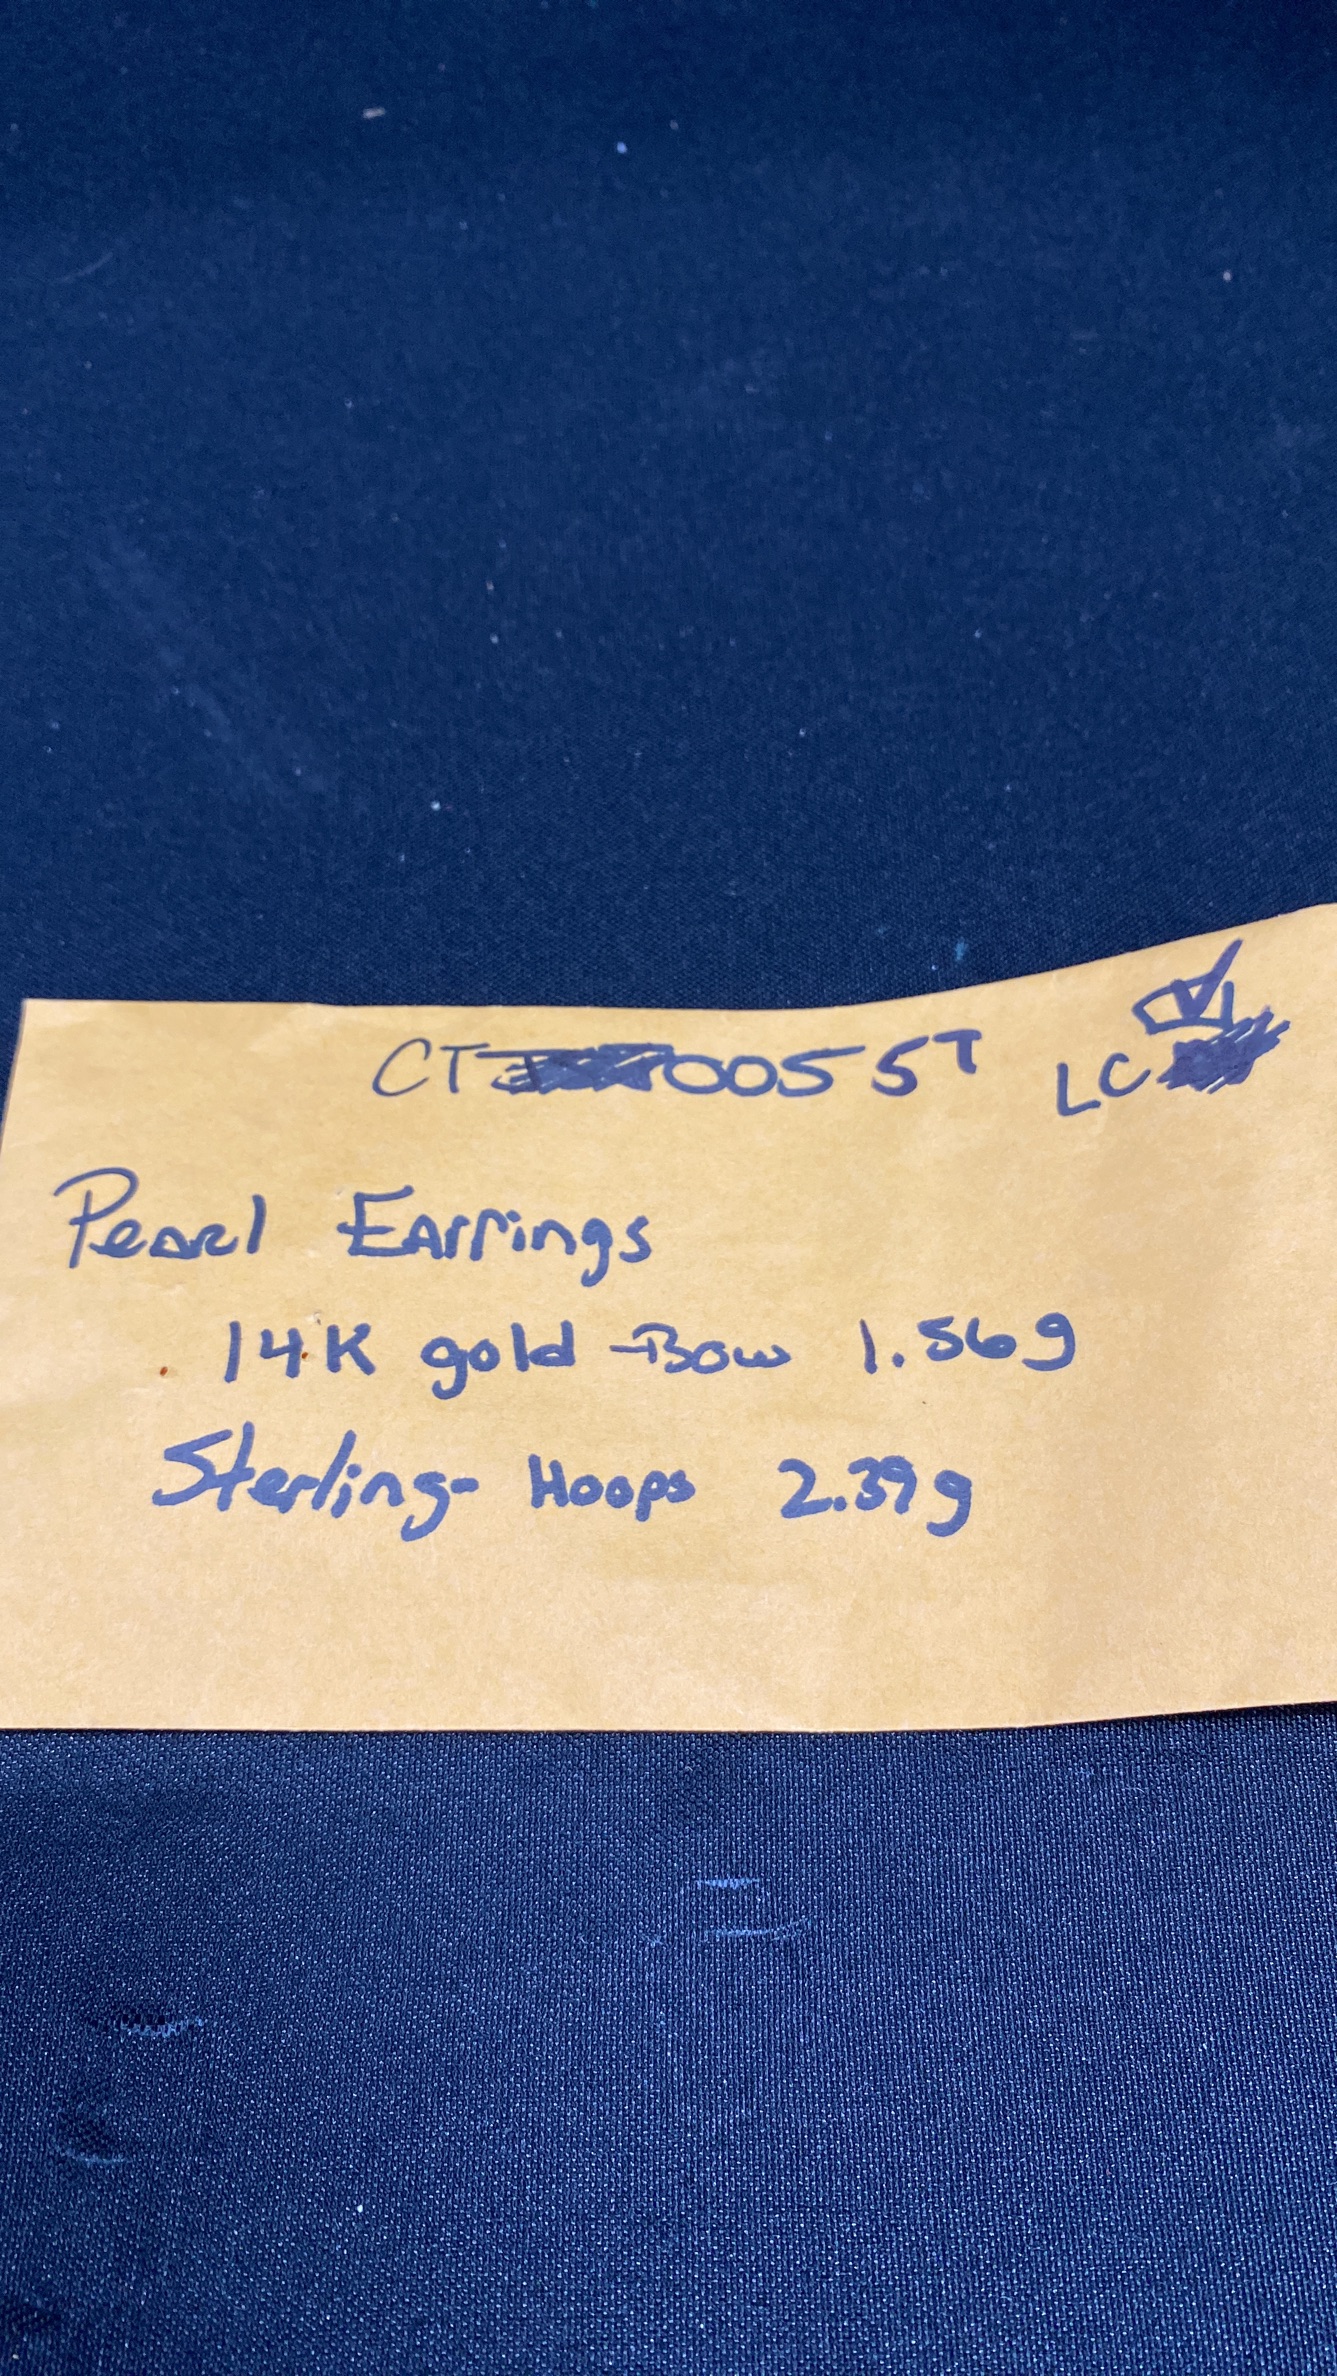 CT 0055T LC
Pearl Earrings
14K gold -Bow 1.56g
Sterling- Hoops 2.39g